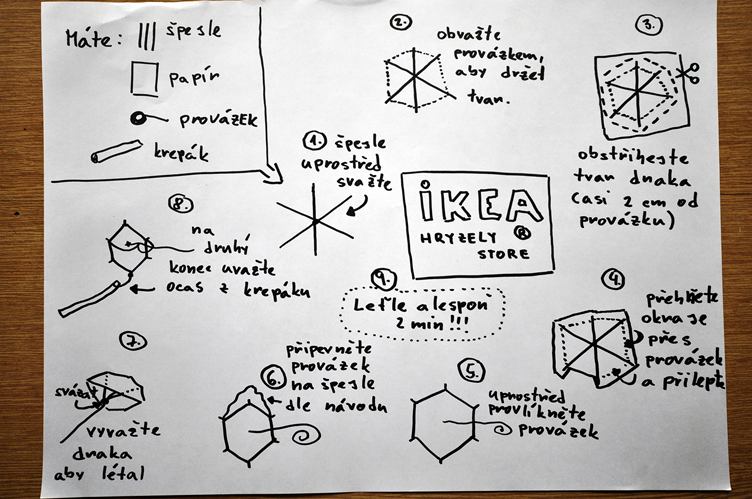 Máte: špejle
papír
provázek
krepák
1. špejle
uprostřed
svažte
2. obvažte
provázkem,
aby držel
tvar.
3.
obstřihněte
tvar draka
(asi 2 cm od
provázku)
4. přehněte
okraje
přes
provázek
a přilepte
5. uprostřed
provlíkněte
provázek
6. připevněte
provázek
na špejle
dle návodu
7.
svázat
vyvažte
draka
aby létal
8. na
druhý
konec uvažte
ocas z krepáku
9.
Leťte alespoň
2 min!!!
IKEA
HRYZELY ®
STORE